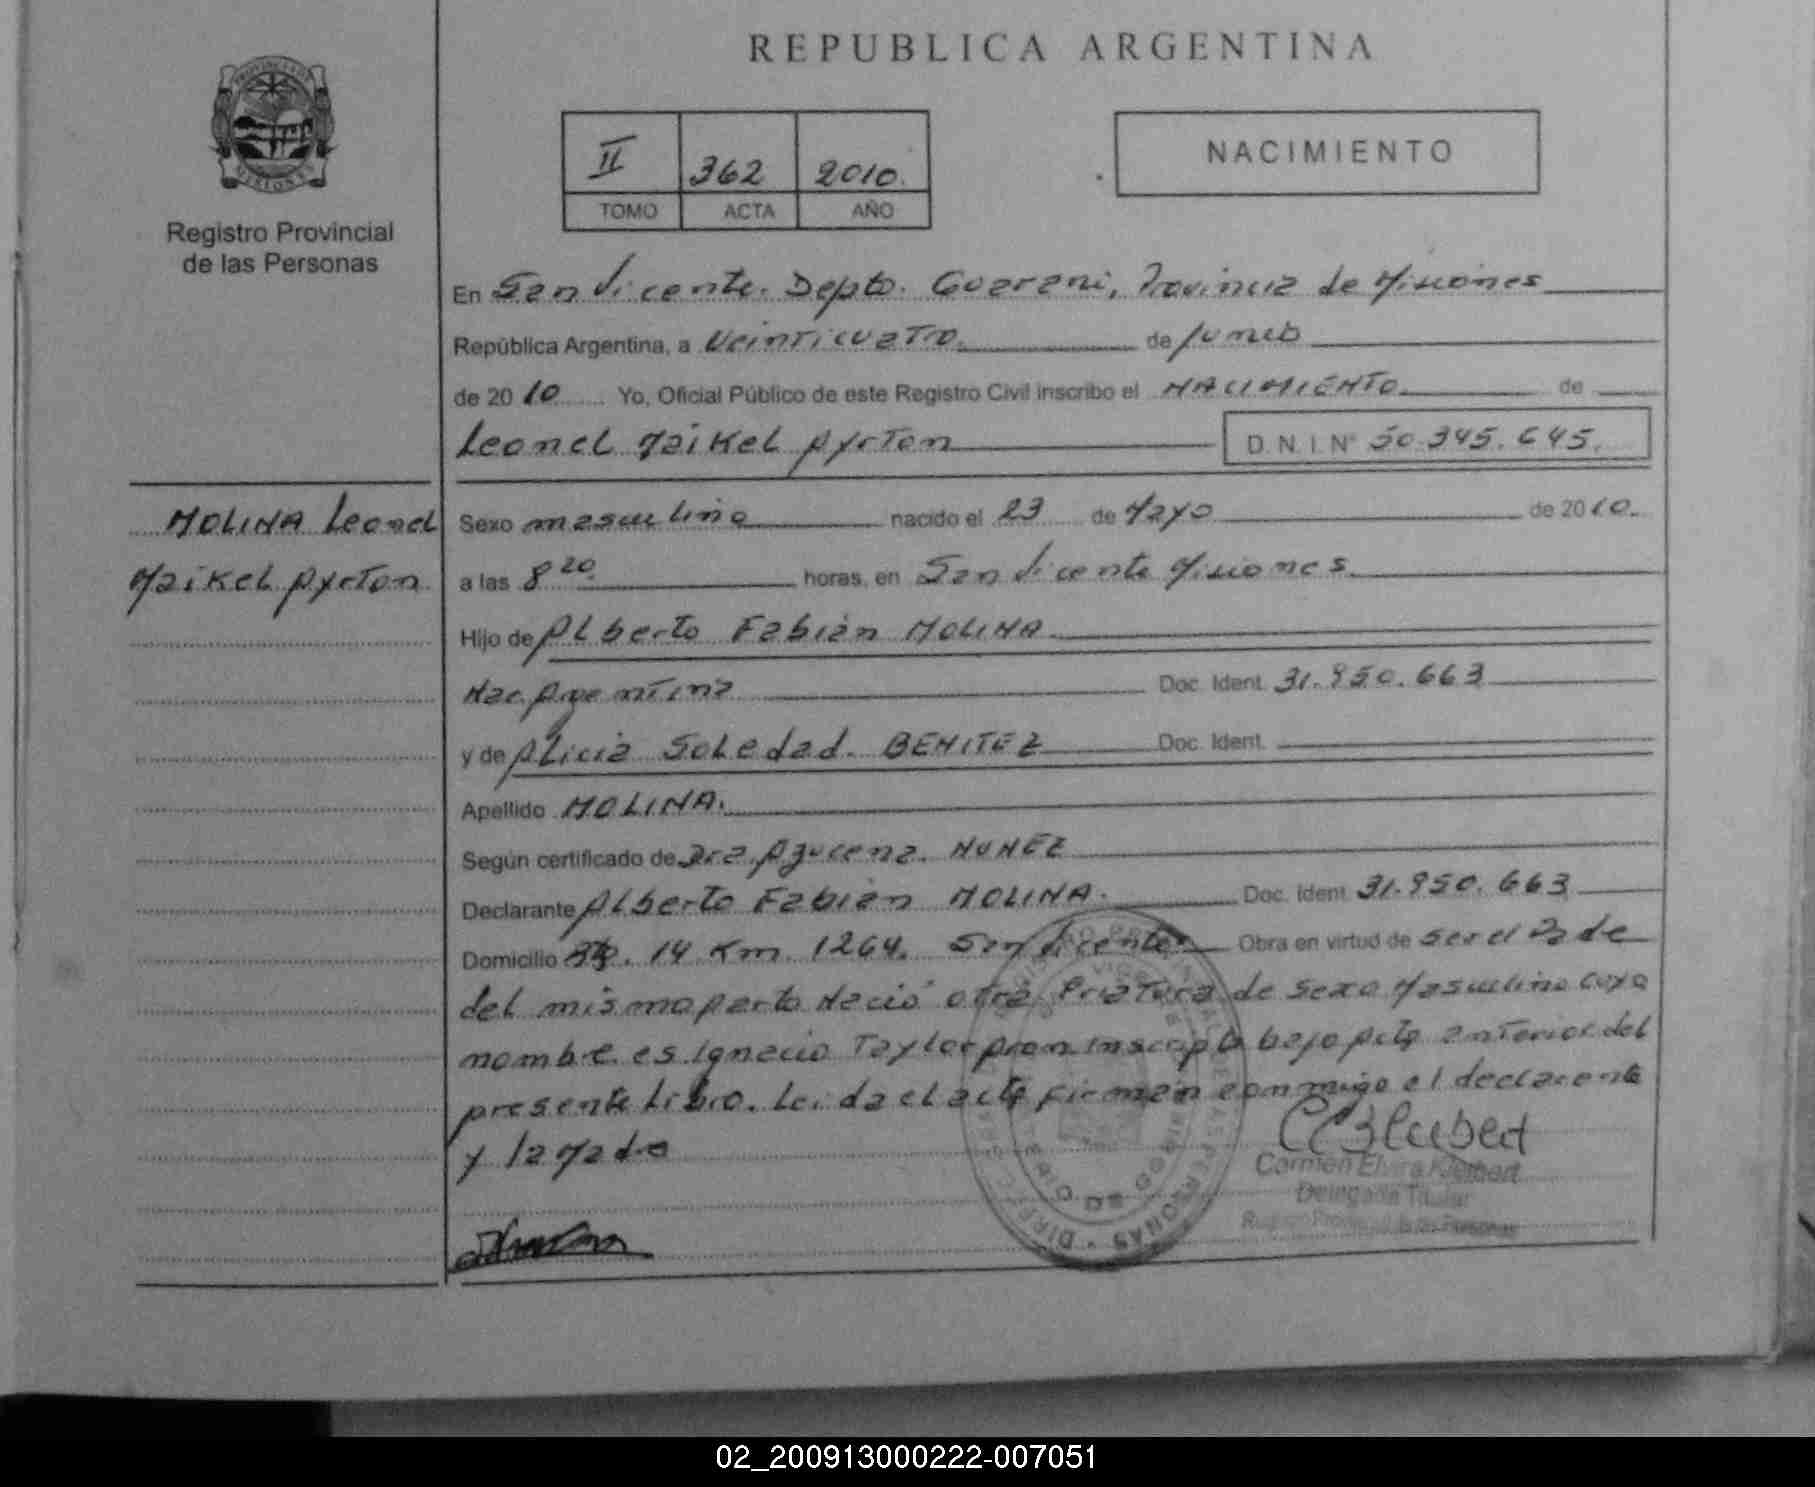 REPUBLICA ARGENTINA
PROVINCIA DE
MISIONES
Registro Provincial
de las Personas
II 362 2010.
TOMO ACTA AÑO
NACIMIENTO
En San Vicente. Depto. Guarani, Provincia de Misiones
República Argentina, a Veinticuatro. de Junio
de 2010 Yo, Oficial Público de este Registro Civil inscribo el NACIMIENTO de
Leonel Maikel Ayrton D.N.I.Nº 50.345.645.
MOLINA Leonel
Maikel Ayrton
Sexo masculino nacido el 23 de Mayo de 2010.
a las 8 20 horas, en San Vicente Misiones
Hijo de Alberto Fabián MOLINA
Nac. Argentina Doc. Ident. 31.950.663
y de Alicia Soledad. BENITEZ Doc. Ident.
Apellido MOLINA.
Según certificado de Dra. Azucena. NUNEZ
Declarante Alberto Fabián MOLINA. Doc. Ident. 31.950.663
Domicilio 14 Km. 1264. San Vicente Obra en virtud de ser el Padre
del mismo parto Nació otra Criatura de Sexo Masculino cuyo
nombre es Ignacio Taylor inscripto bajo acta anterior del
presente Libro. Leida el acta firman conmigo el declarante
y la Madre
Carmen Elvira
Delegada Titular
Registro Provincial de las Personas
02_200913000222-007051